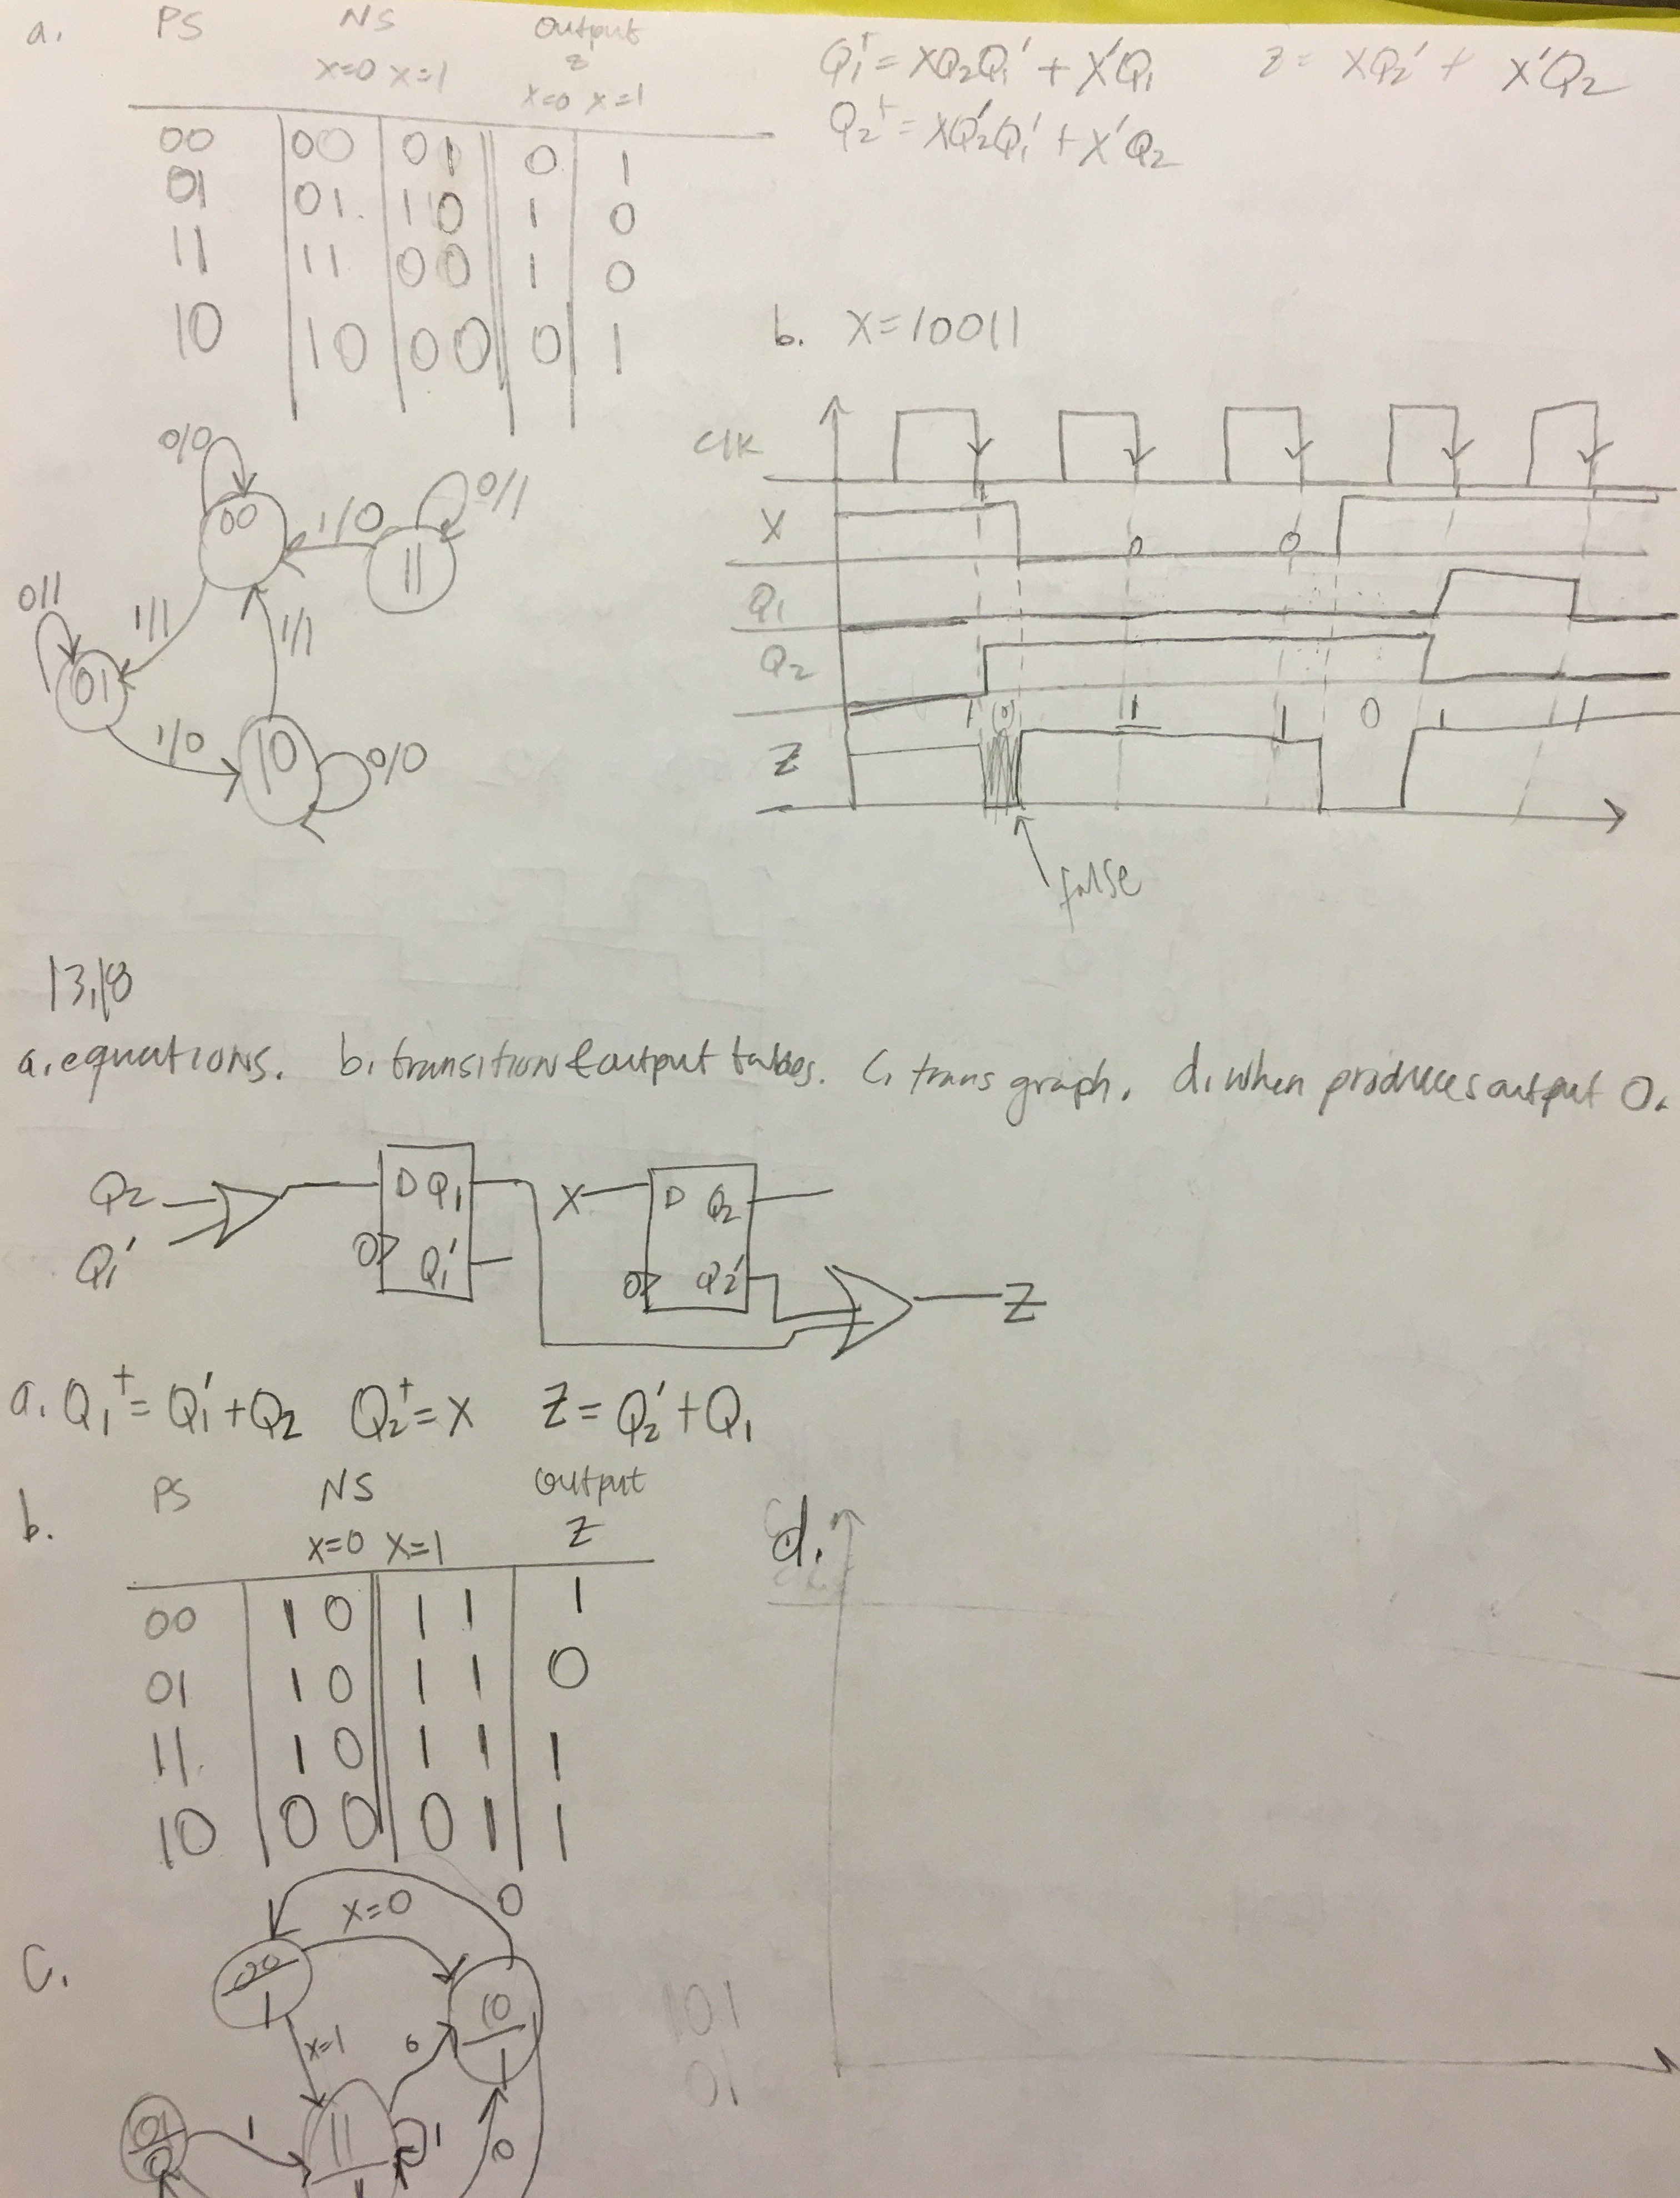 a. PS NS Output
z
x=0 x=1 x=0 x=1
00 00 01 0 1
01 01 10 1 0
11 11 00 1 0
10 10 00 0 1
Q₁⁺ = XQ₂Q₁' + X'Q₁ z = XQ₂' + X'Q₂
Q₂⁺ = XQ₂'Q₁' + X'Q₂
0/0
00
1/0
0/1
11
0/1
1/1
1/1
01
1/0
10
0/0
b. X=10011
Clk
X 1 0 0
Q₁
Q₂
1 0 1 1 0 1 1
Z
false
13.18
a. equations. b. transition & output tables. c. trans graph. d. when produces output 0.
Q₂ D Q₁ X D Q₂
Q₁' Q₁' Q₂' Z
a. Q₁⁺ = Q₁' + Q₂ Q₂⁺ = X Z = Q₂' + Q₁
b. PS NS Output
x=0 x=1 Z
00 1 0 1 1 1
01 1 0 1 1 0
11 1 0 1 1 1
10 0 0 0 1 1
d.
c.
x=0 0
00
1
10
1
x=1 0
01
0
1
11
1
0
101
10